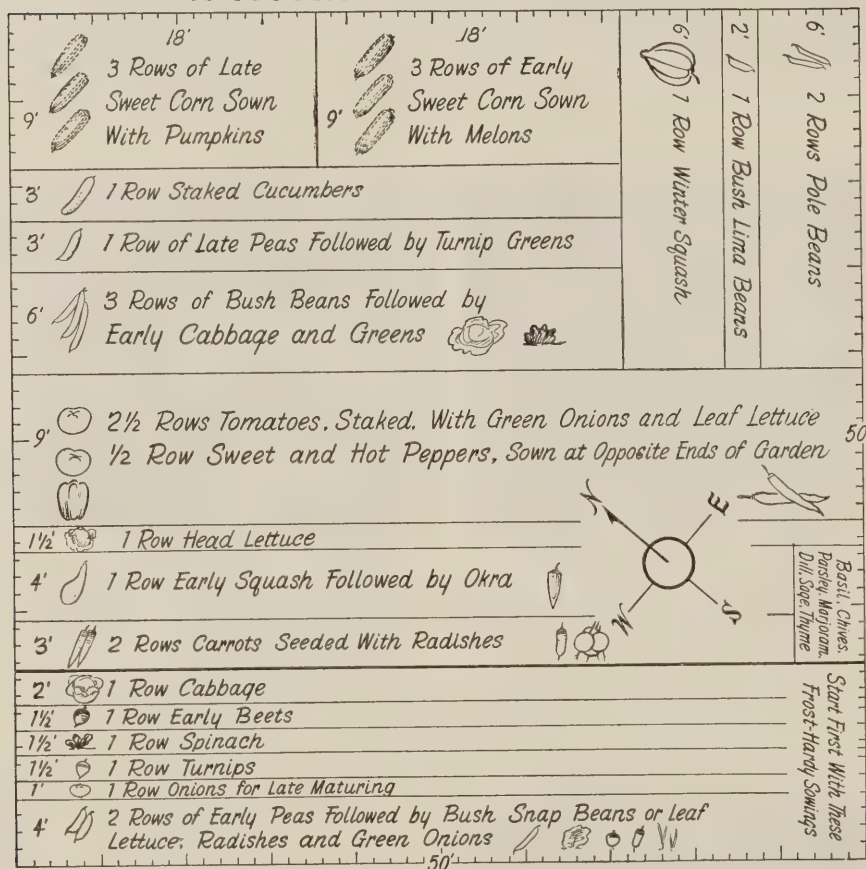 18'
3 Rows of Late
Sweet Corn Sown
With Pumpkins
9'
18'
3 Rows of Early
Sweet Corn Sown
With Melons
9'
6'
1 Row Winter Squash
2'
1 Row Bush Lima Beans
6'
2 Rows Pole Beans
3' 1 Row Staked Cucumbers
3' 1 Row of Late Peas Followed by Turnip Greens
6' 3 Rows of Bush Beans Followed by
Early Cabbage and Greens
9' 2½ Rows Tomatoes, Staked. With Green Onions and Leaf Lettuce
½ Row Sweet and Hot Peppers, Sown at Opposite Ends of Garden
50'
N
E
W
S
1½' 1 Row Head Lettuce
4' 1 Row Early Squash Followed by Okra
3' 2 Rows Carrots Seeded With Radishes
Basil, Chives,
Parsley, Marjoram,
Dill, Sage, Thyme
2' 1 Row Cabbage
1½' 1 Row Early Beets
1½' 1 Row Spinach
1½' 1 Row Turnips
1' 1 Row Onions for Late Maturing
4' 2 Rows of Early Peas Followed by Bush Snap Beans or leaf
Lettuce, Radishes and Green Onions
Start First With These
Frost-Hardy Sowings
50'